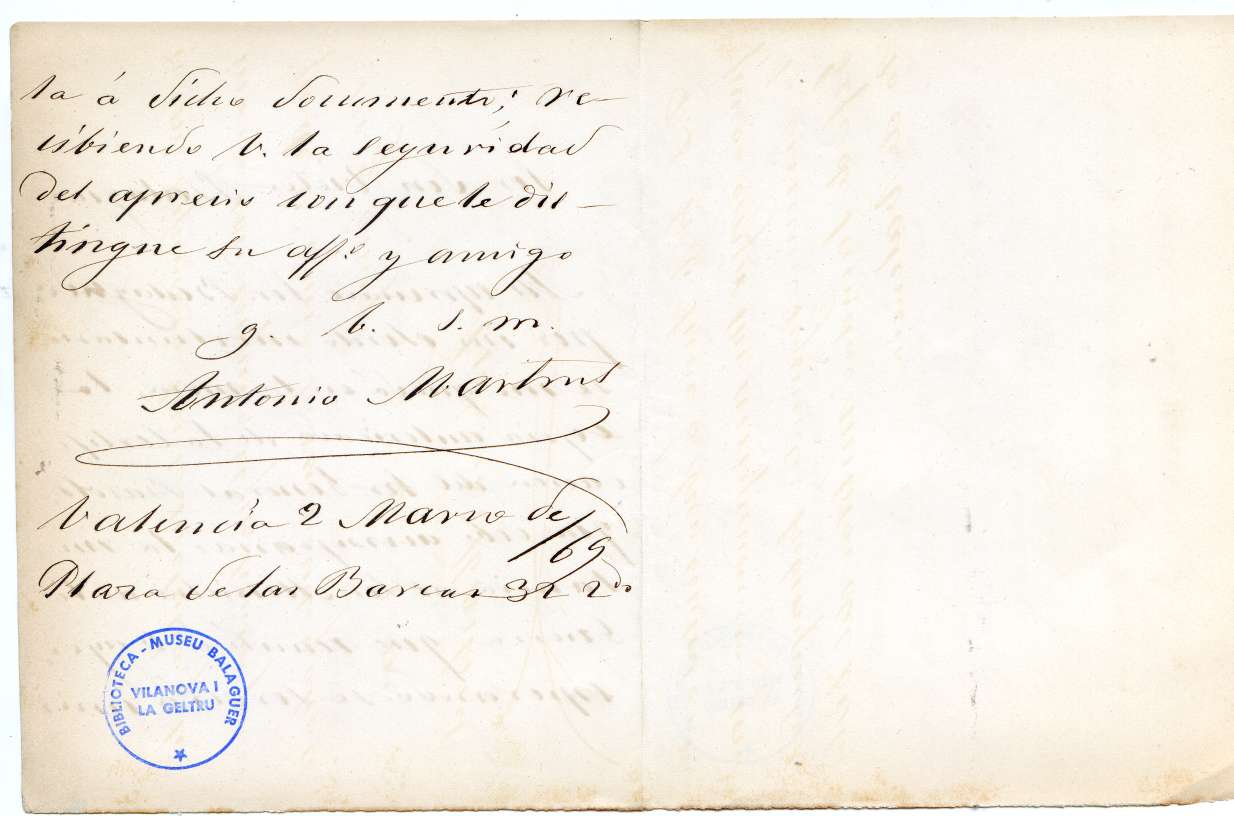 ta á dicho documento; re-
cibiendo V. la seguridad
del aprecio con que le dis-
tingue su aff.º y amigo
q. b. s. m.
Antonio
Valencia 2 Marzo de/69
Plaza de las Barcas 32 2do
BIBLIOTECA - MUSEU BALAGUER
VILANOVA I
LA GELTRU